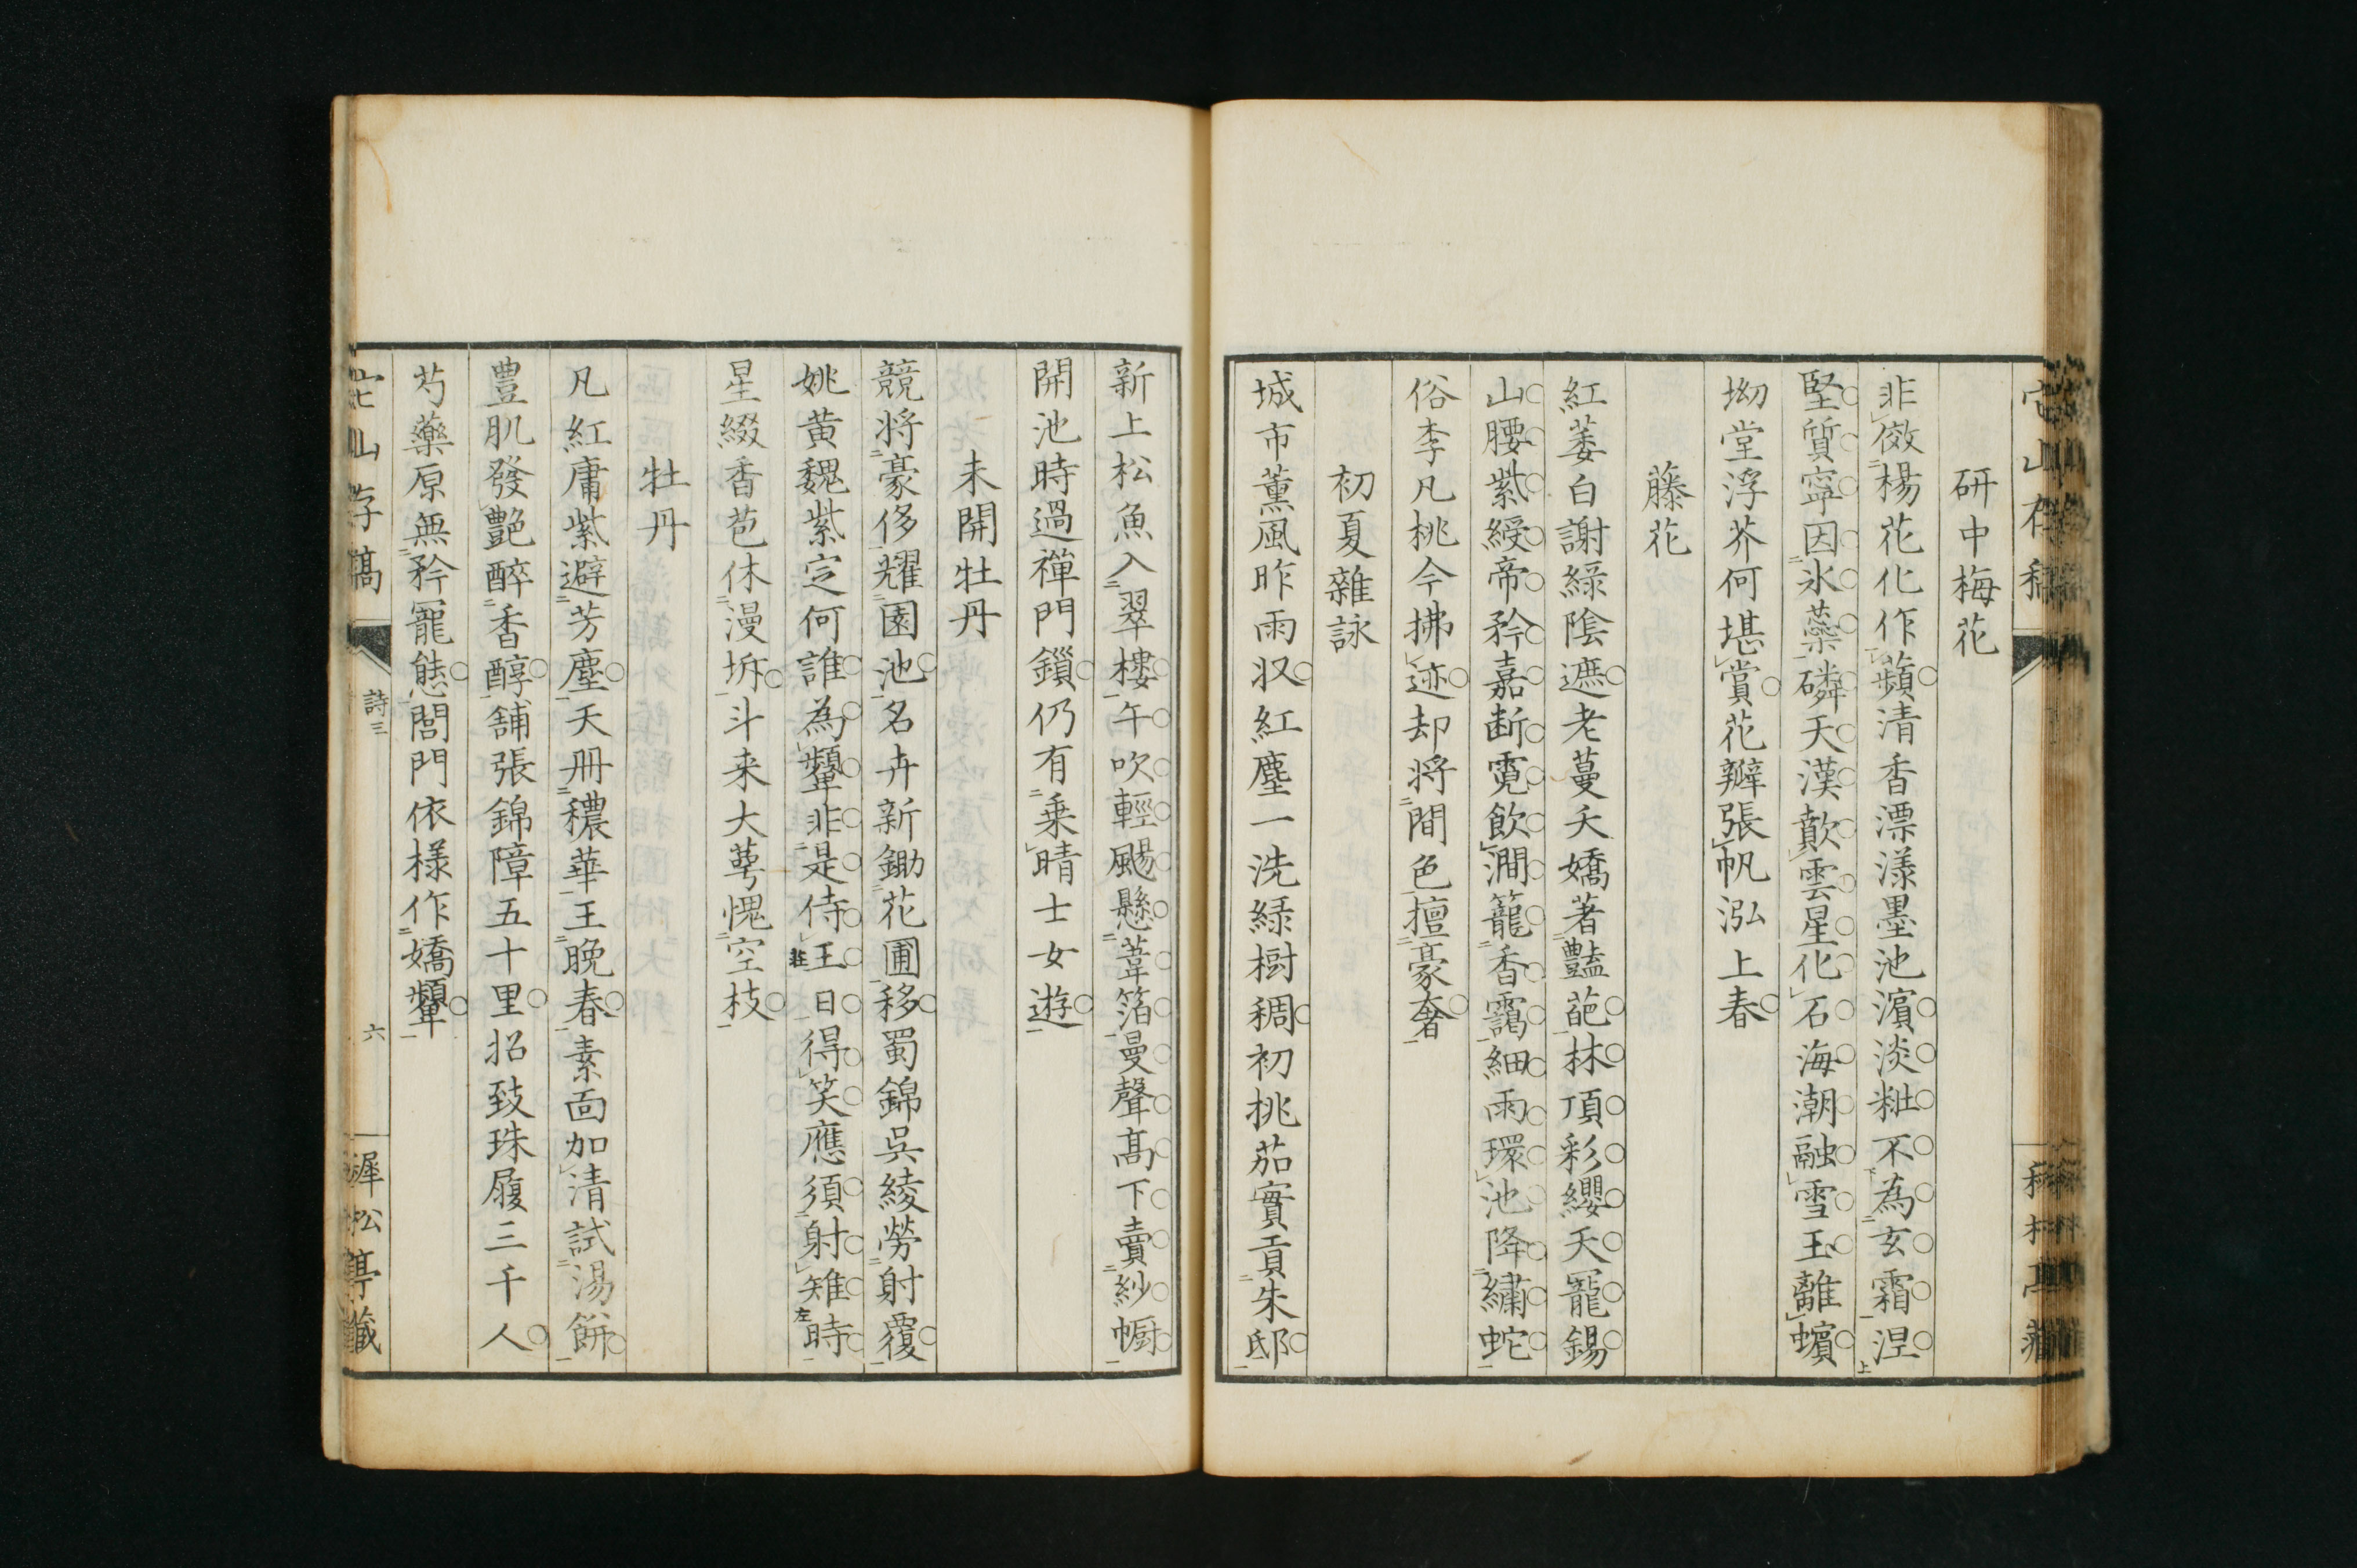 研中梅花
非傚楊花化作蘋清香漂漾墨池濵淡粧不為玄霜涅
堅質寧因氷蘂磷天漢歕雲星化石海潮融雪玉離蠙
坳堂浮芥何堪賞花瓣張帆泓上春
藤花
紅萎白謝綠陰遮老蔓夭嬌著豔葩林頂彩纓天寵錫
山腰紫綬帝矜嘉断霓飲澗籠香靄細雨環池降繡蛇
俗李凡桃今拂迹却將間色擅豪奢
初夏雜詠
城市薰風昨雨収紅塵一洗緑樹稠初挑茄實貢朱邸
新上松魚入翠樓午吹輕颺懸葦箔曼聲高下賣紗幮
開池時過禪門鎖仍有乗晴士女遊
未開牡丹
競將豪侈耀園池名卉新鋤花圃移蜀錦吳綾勞射覆
姚黄魏紫定何誰為顰非是侍王日得笑應須射雉時
莊
左
星綴香苞休漫坼斗来大萼愧空枝
牡丹
凡紅庸紫避芳塵天冊穠華王晚春素面加清試湯餅
豊肌發艶醉香醇舗張錦障五十里招致珠履三千人
芍藥原無矜寵態閭門依様作嬌顰
宕山存稿
詩三
六
犀松亭蔵